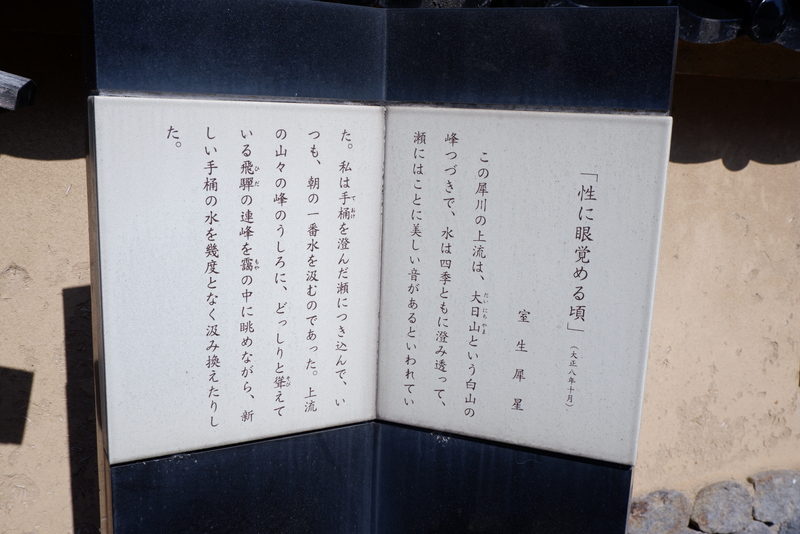 「性に眼覚める頃」（大正八年十月）
室生犀星
この犀川の上流は、大日山という白山の
峰つづきで、水は四季ともに澄み透って、
瀬にはことに美しい音があるといわれてい
た。私は手桶を澄んだ瀬につき込んで、い
つも、朝の一番水を汲むのであった。上流
の山々の峰のうしろに、どっしりと聳えて
いる飛驒の連峰を靄の中に眺めながら、新
しい手桶の水を幾度となく汲み換えたりし
た。